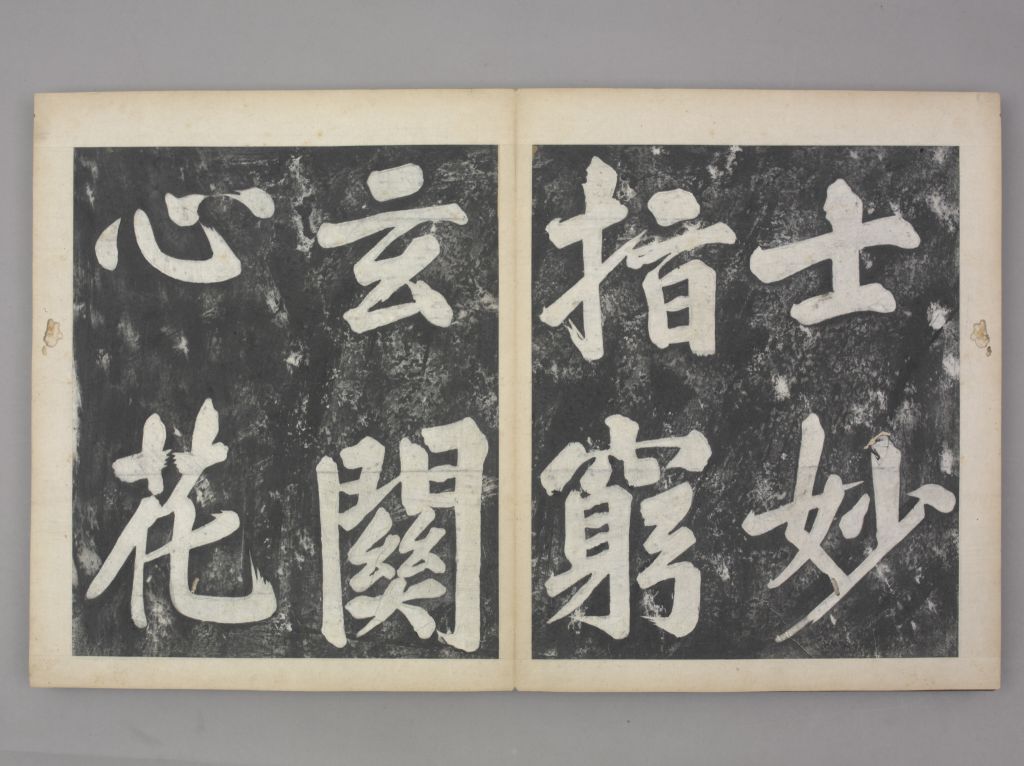 士妙
指窮
玄關
心花